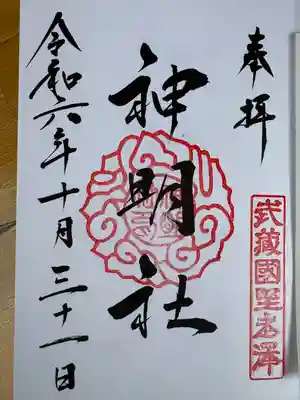 奉拝
武蔵國野老澤
神明社
令和六年十月三十一日